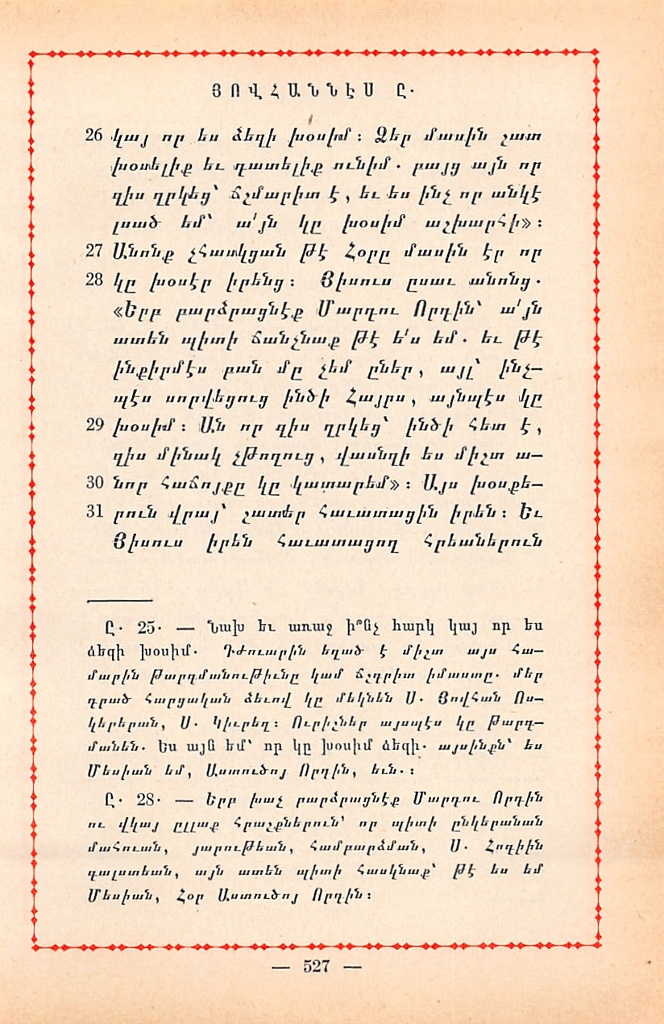 ՅՈՎՀԱՆՆԷՍ Ը․
26 կայ որ ես ձեզի խօսիմ ։ Ձեր մասին շատ
խօսելիք եւ դատելիք ունիմ․ բայց այն որ
զիս ղրկեց՝ ճշմարիտ է, եւ ես ինչ որ անկէ
լսած եմ՝ ա՛յն կը խօսիմ աշխարհի» ։
27 Անոնք չհասկցան թէ Հօրը մասին էր որ
28 կը խօսէր իրենց ։ Յիսուս ըսաւ անոնց․
«Երբ բարձրացնէք Մարդու Որդին՝ ա՛յն
ատեն պիտի ճանչնաք թէ ե՛ս եմ․ եւ թէ
ինքիրմէս բան մը չեմ ըներ, այլ՝ ինչ–
պէս սորվեցուց ինծի Հայրս, այնպէս կը
29 խօսիմ ։ Ան որ զիս ղրկեց՝ ինծի հետ է,
զիս մինակ չթողուց, վասնզի ես միշտ ա–
30 նոր հաճոյքը կը կատարեմ» ։ Այս խօսքե–
31 րուն վրայ՝ շատեր հաւատացին իրեն ։ Եւ
Յիսուս իրեն հաւատացող Հրեաներուն
Ը․ 25․ — Նախ եւ առաջ ի՞նչ հարկ կայ որ ես
ձեզի խօսիմ․ Դժուարին եղած է միշտ այս հա–
մարին թարգմանութիւնը կամ ճշգրիտ իմաստը․ մեր
դրած հարցական ձեւով կը մեկնեն Ս․ Յովհան Ոս–
կերերան, Ս․ Կիւրեղ ։ Ուրիշներ այսպէս կը թարգ–
մանեն․ Ես այն եմ՝ որ կը խօսիմ ձեզի․ այսինքն՝ ես
Մեսիան եմ, Աստուծոյ Որդին, եւն․ ։
Ը․ 28․ — Երբ խաչ բարձրացնէք Մարդու Որդին
ու վկայ ըլլաք հրաշքներուն՝ որ պիտի ընկերանան
մահուան, յարութեան, համբարձման, Ս․ Հոգիին
գալստեան, այն ատեն պիտի հասկնաք՝ թէ ես եմ
Մեսիան, Հօր Աստուծոյ Որդին ։
— 527 —